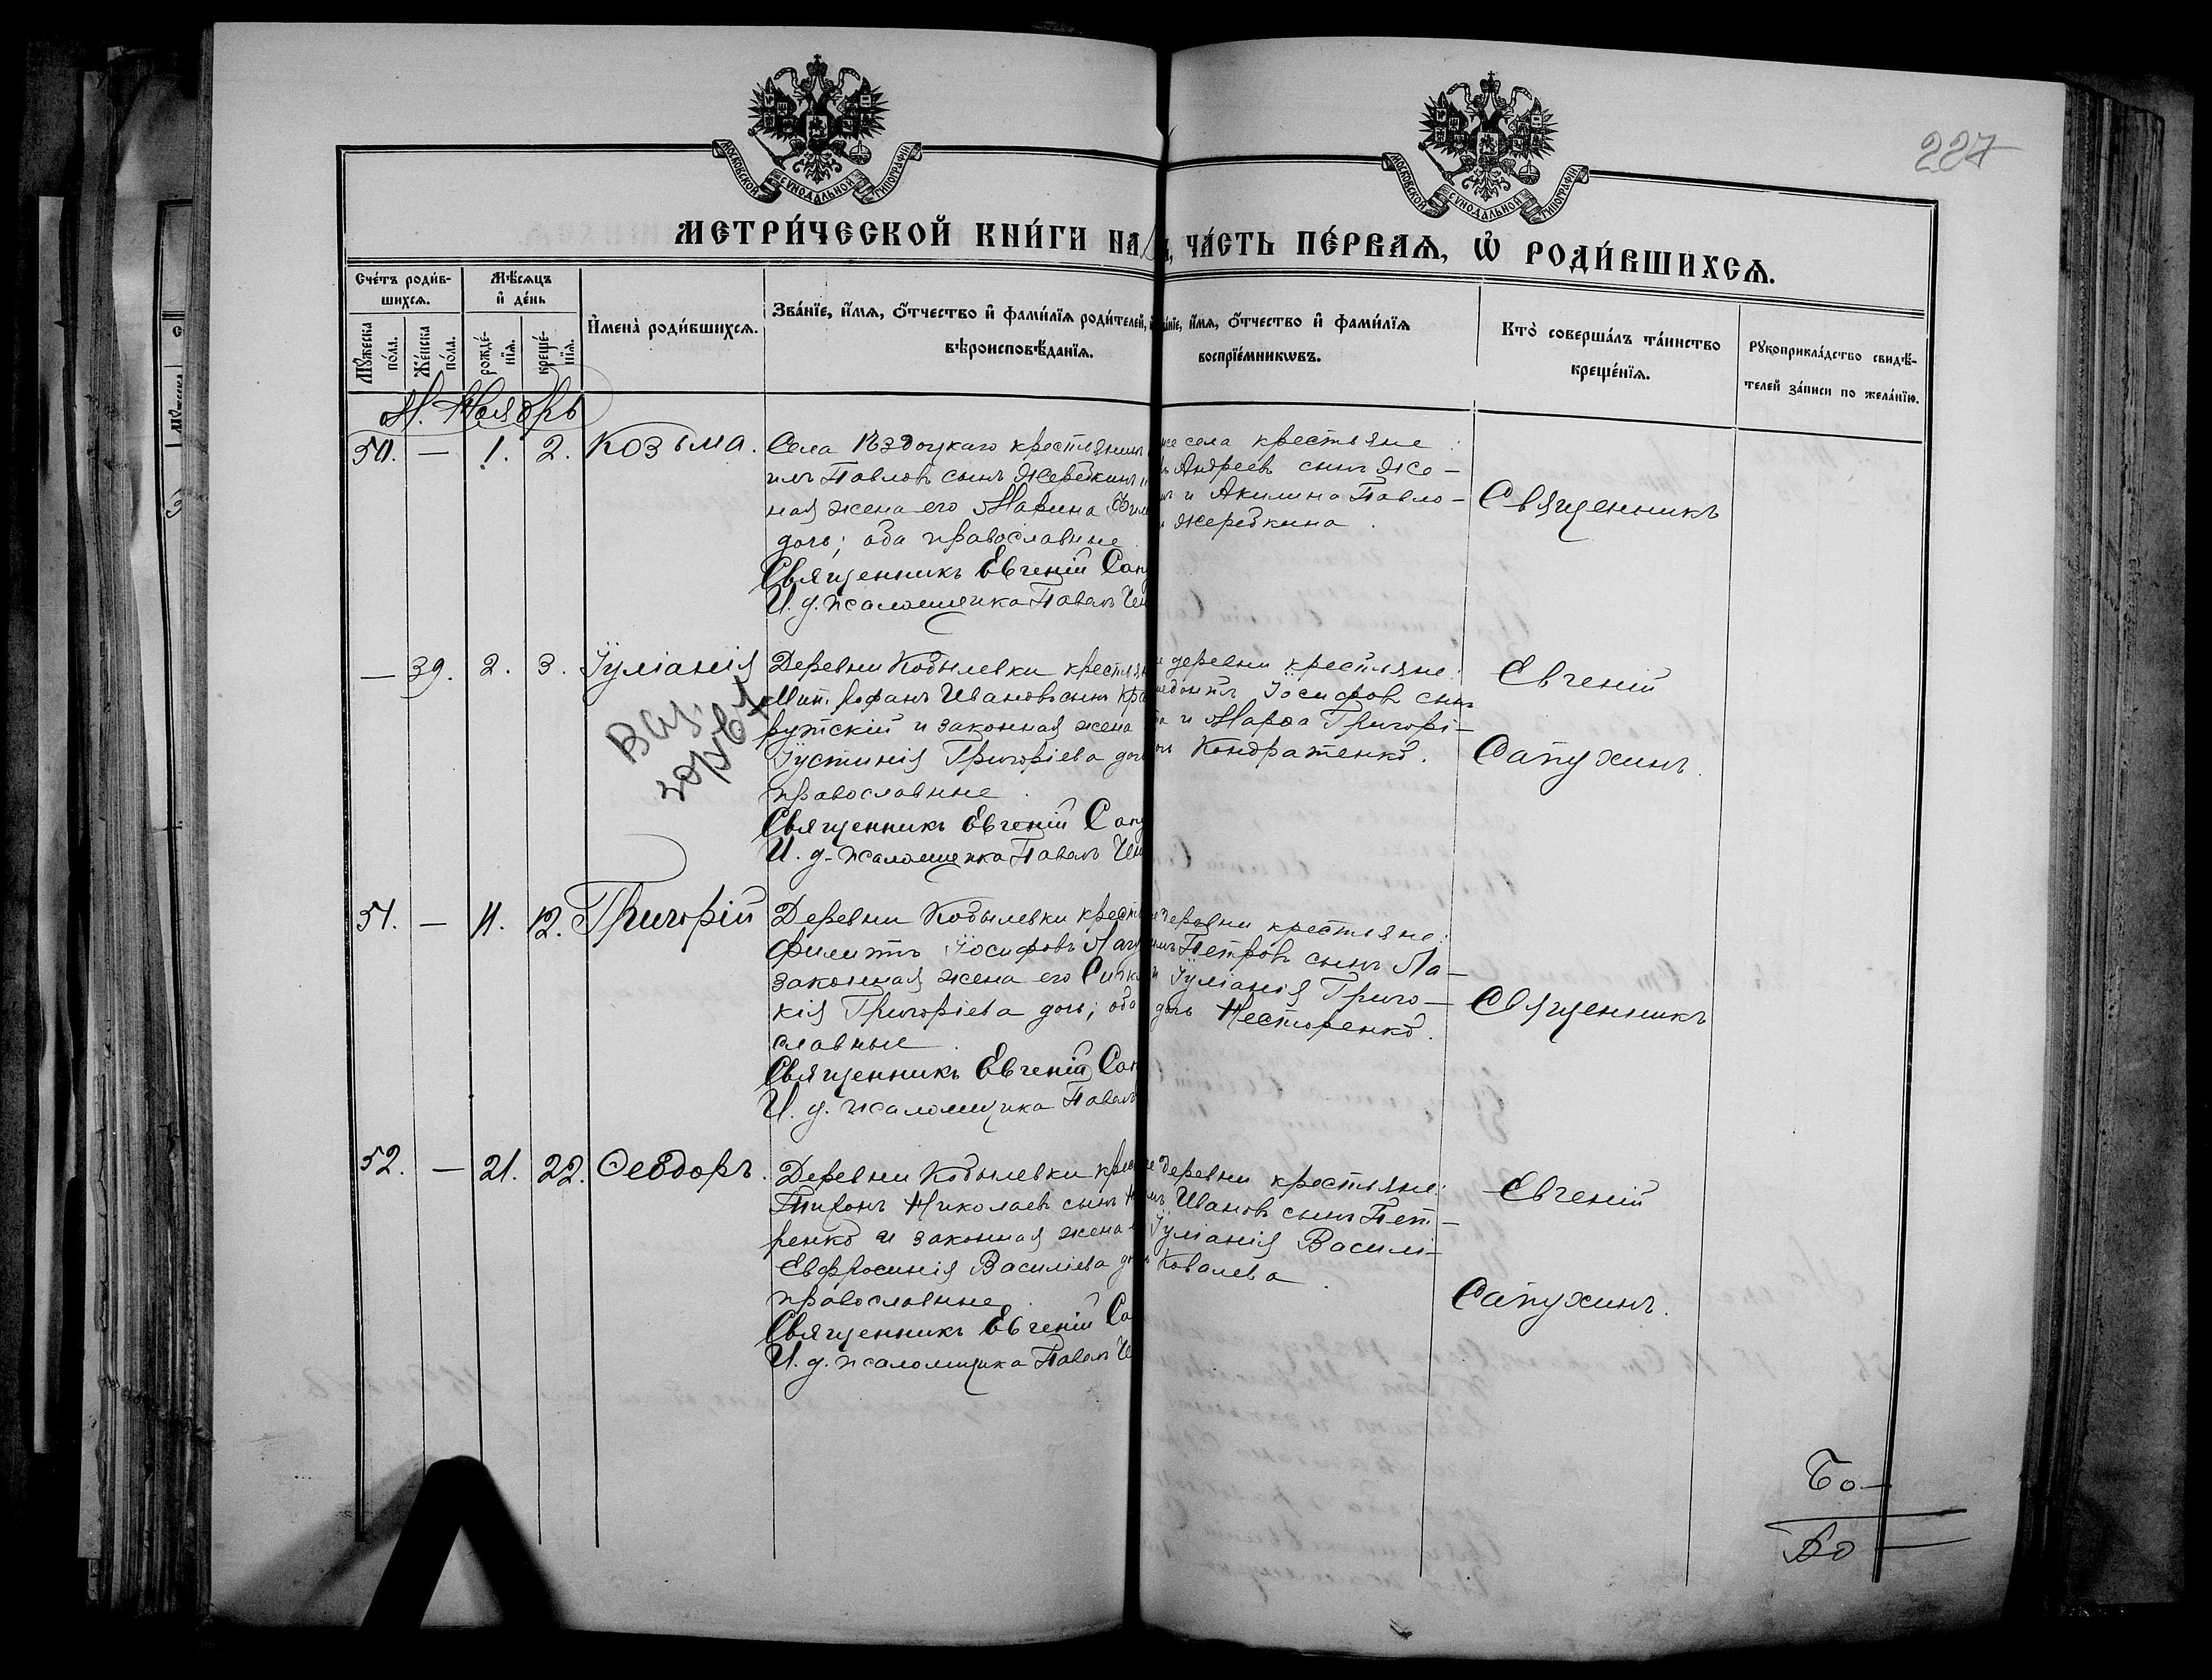 227
МОСКОВСКОЙ СѴНОДАЛЬНОЙ ТИПОГРАФІИ
МОСКОВСКОЙ СѴНОДАЛЬНОЙ ТИПОГРАФІИ
МЕТРИ́ЧЕСКОЙ КНИ́ГИ НА
ЧА́СТЬ ПЕ́РВАЯ, Ѡ҆ РОДИ́ВШИХСЯ.
Сче́тъ роди́в-
шихся.
Мѣ́сяцъ
и҆ де́нь
Мꙋ́жеска
по́ла.
Же́нска
по́ла.
рожде́-
нїя.
креще́-
нїя.
И҆мена̀ роди́вшихся.
Зва́нїе, и҆́мя, ѻ҆́тчество и҆ фами́лїя роди́телей,
вѣроисповѣ́данїя.
и҆́мя, ѻ҆́тчество и҆ фами́лїя
воспрїе́мникѡвъ.
Кто̀ соверша́лъ та́инство
креще́нїя.
Рꙋкоприкла́дство свидѣ́-
телей за́писи по жела́нїю.
М. Ноябрь
50. — 1. 2. Козьма.
Села крестьянинъ
Павловъ сынъ Жеребкинъ
ная жена его Марина
дочь; оба православные
Священникъ Евгеній
И. д. псаломщика Павелъ
же села крестьяне:
Андреевъ сынъ Же-
и Акилина Павло-
Жеребкина.
Священникъ
— 39. 2. 3. Іуліанія
Деревни Кобылевки
Митрофанъ Ивановъ сынъ
рутскій и законная жена
Іустинія Григоріева
православные.
Священникъ Евгеній
И. д. псаломщика Павелъ
деревни крестьяне:
Іосифовъ сынъ
и Марѳа Григорі-
Кондратенко.
Евгеній
Сапухинъ.
51. — 11. 12. Григорій
Деревни Кобылевки
Филиппъ Іосифовъ
законная жена его
кія Григоріева дочь; оба
славные.
Священникъ Евгеній
И. д. псаломщика Павелъ
деревни крестьяне:
Петровъ сынъ Ла-
Іуліанія Григо-
дочь Нестеренко.
Священникъ
52. — 21. 22. Ѳеодоръ.
Деревни Кобылевки
Тихонъ Николаевъ сынъ
ренко и законная жена
Евфросинія Василіева
православные.
Священникъ Евгеній
И. д. псаломщика Павелъ
деревни крестьяне:
Ивановъ сынъ Пет-
Іуліанія Василі-
Ковалева.
Евгеній
Сапухинъ.